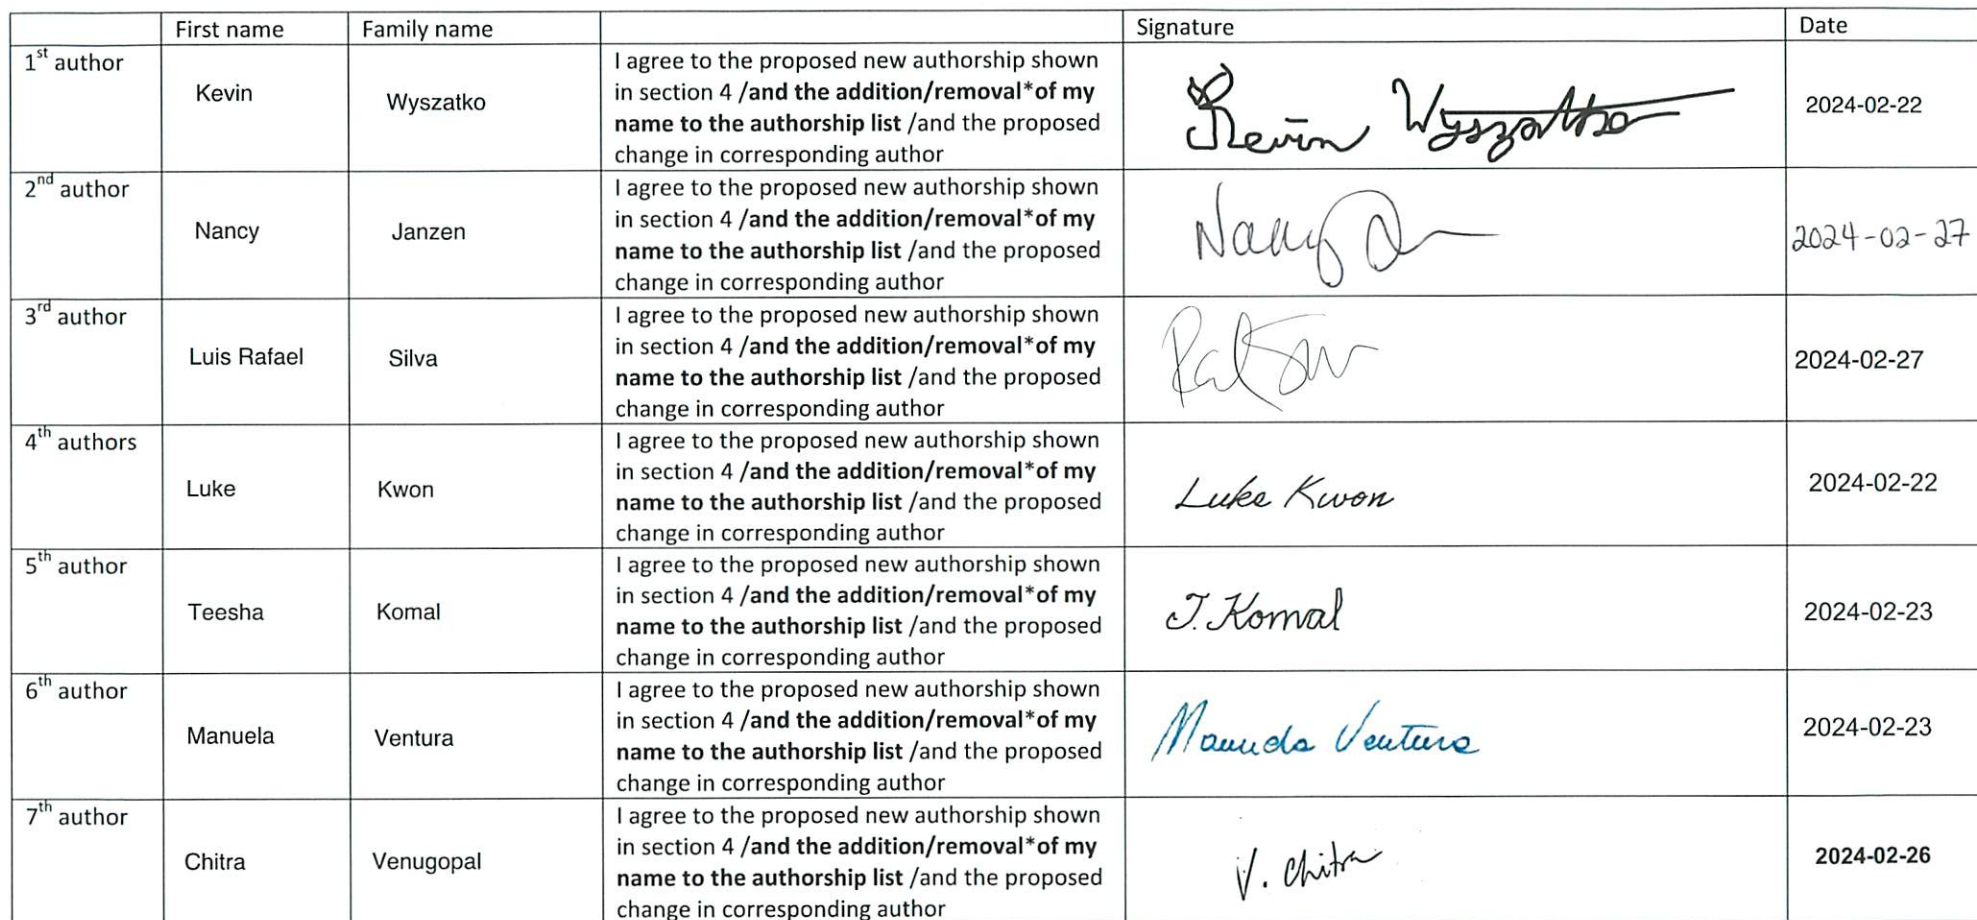 First name Family name Signature Date
1st author Kevin Wyszatko I agree to the proposed new authorship shown
in section 4 /and the addition/removal*of my
name to the authorship list /and the proposed
change in corresponding author
Kevin Wyszatko 2024-02-22
2nd author Nancy Janzen I agree to the proposed new authorship shown
in section 4 /and the addition/removal*of my
name to the authorship list /and the proposed
change in corresponding author
Nancy 2024-02-27
3rd author Luis Rafael Silva I agree to the proposed new authorship shown
in section 4 /and the addition/removal*of my
name to the authorship list /and the proposed
change in corresponding author
2024-02-27
4th authors Luke Kwon I agree to the proposed new authorship shown
in section 4 /and the addition/removal*of my
name to the authorship list /and the proposed
change in corresponding author
Luke Kwon 2024-02-22
5th author Teesha Komal I agree to the proposed new authorship shown
in section 4 /and the addition/removal*of my
name to the authorship list /and the proposed
change in corresponding author
T. Komal 2024-02-23
6th author Manuela Ventura I agree to the proposed new authorship shown
in section 4 /and the addition/removal*of my
name to the authorship list /and the proposed
change in corresponding author
Manuela Ventura 2024-02-23
7th author Chitra Venugopal I agree to the proposed new authorship shown
in section 4 /and the addition/removal*of my
name to the authorship list /and the proposed
change in corresponding author
V. Chitra 2024-02-26